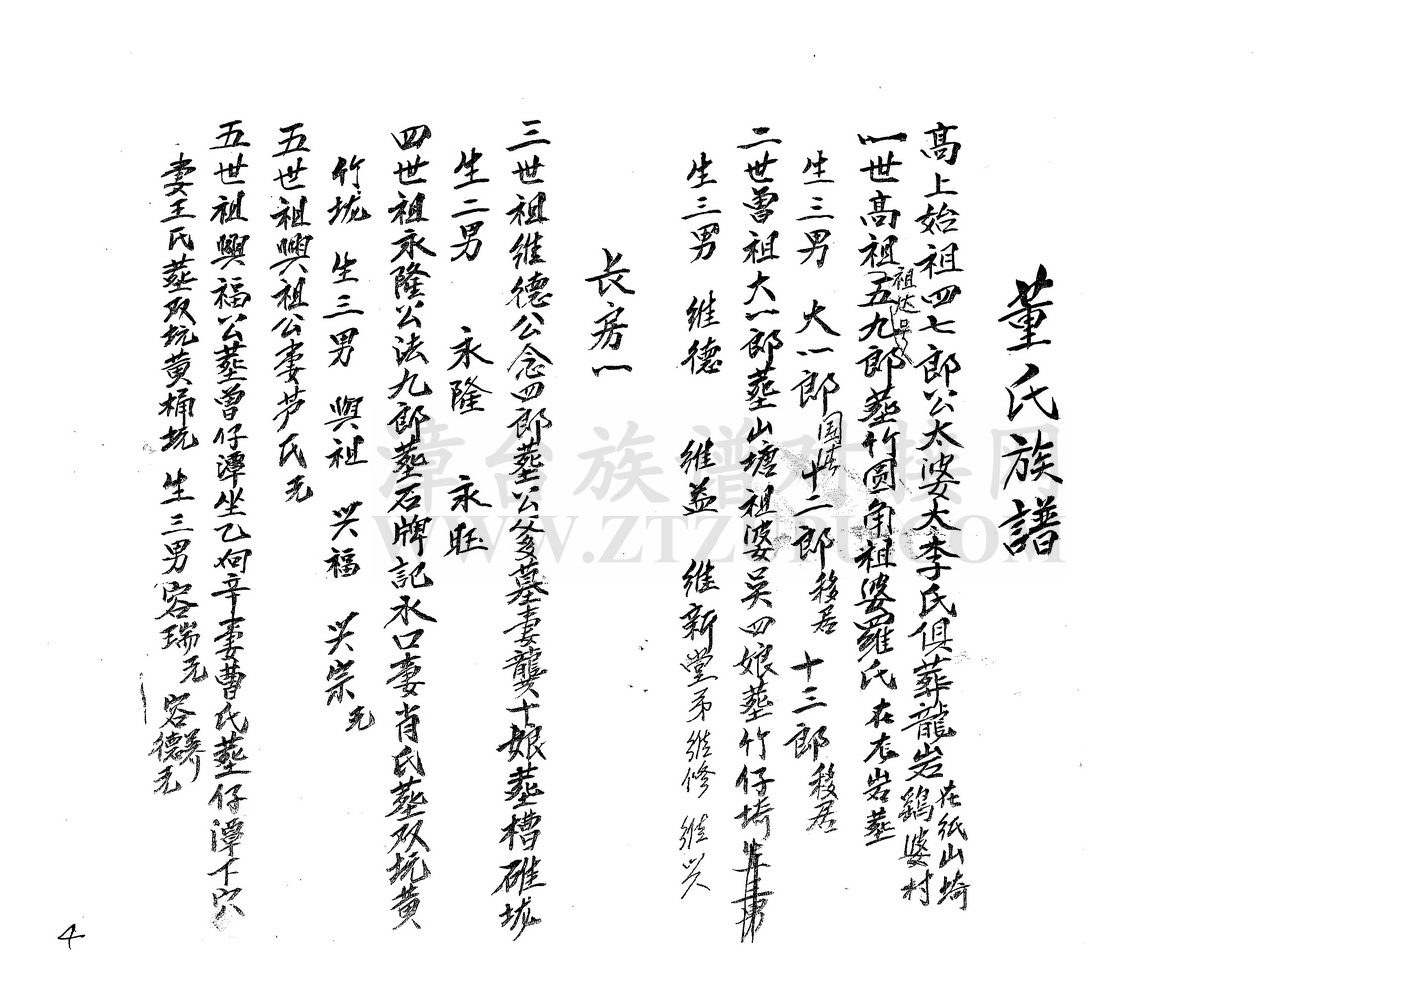 董氏族譜
高上始祖四七郎公太婆太李氏俱葬龍岩鷄婆村
在紙山埼
一世高祖五九郎葬竹圆角祖婆羅氏在龙岩葬
祖达号
生三男 大一郎 国清 十二郎移居 十三郎移居
二世曾祖大一郎葬山塘祖婆吴四娘葬竹仔埼生三男
生三男 维德 维益 维新堂弟维修 维兴
长房一
三世祖维德公念四郎葬公爹墓妻龔十娘葬槽碓垅
生二男 永隆 永旺
四世祖永隆公法九郎葬石牌記水口妻肖氏葬双坑黄
竹垅 生三男 興祖 兴福 兴宗无
五世祖興祖公妻芦氏无
五世祖興福公葬曾仔潭坐乙向辛妻曹氏葬仔潭下穴
妻王氏葬双坑黄桶坑 生三男容瑞无 容養 德无
漳台族谱对接网
WWW.ZTZUPU.COM
4